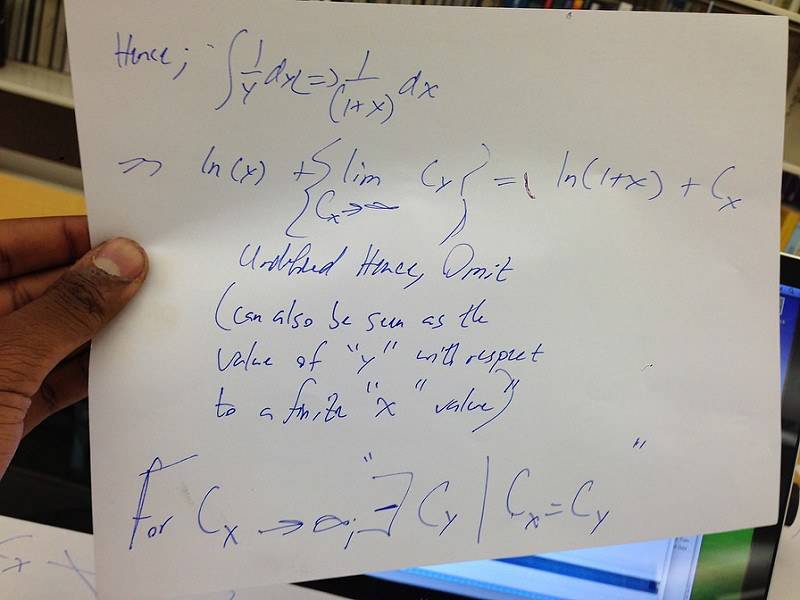 Hence; ∫ 1/y dy => 1/(1+x) dx
=> ln(x) + { lim Cx→∞ Cy } = ln(1+x) + Cx
Undefined Hence, Omit
(can also be seen as the
value of "y" with respect
to a finite "x" value)
For Cx → ∞; "∃ Cy | Cx = Cy"